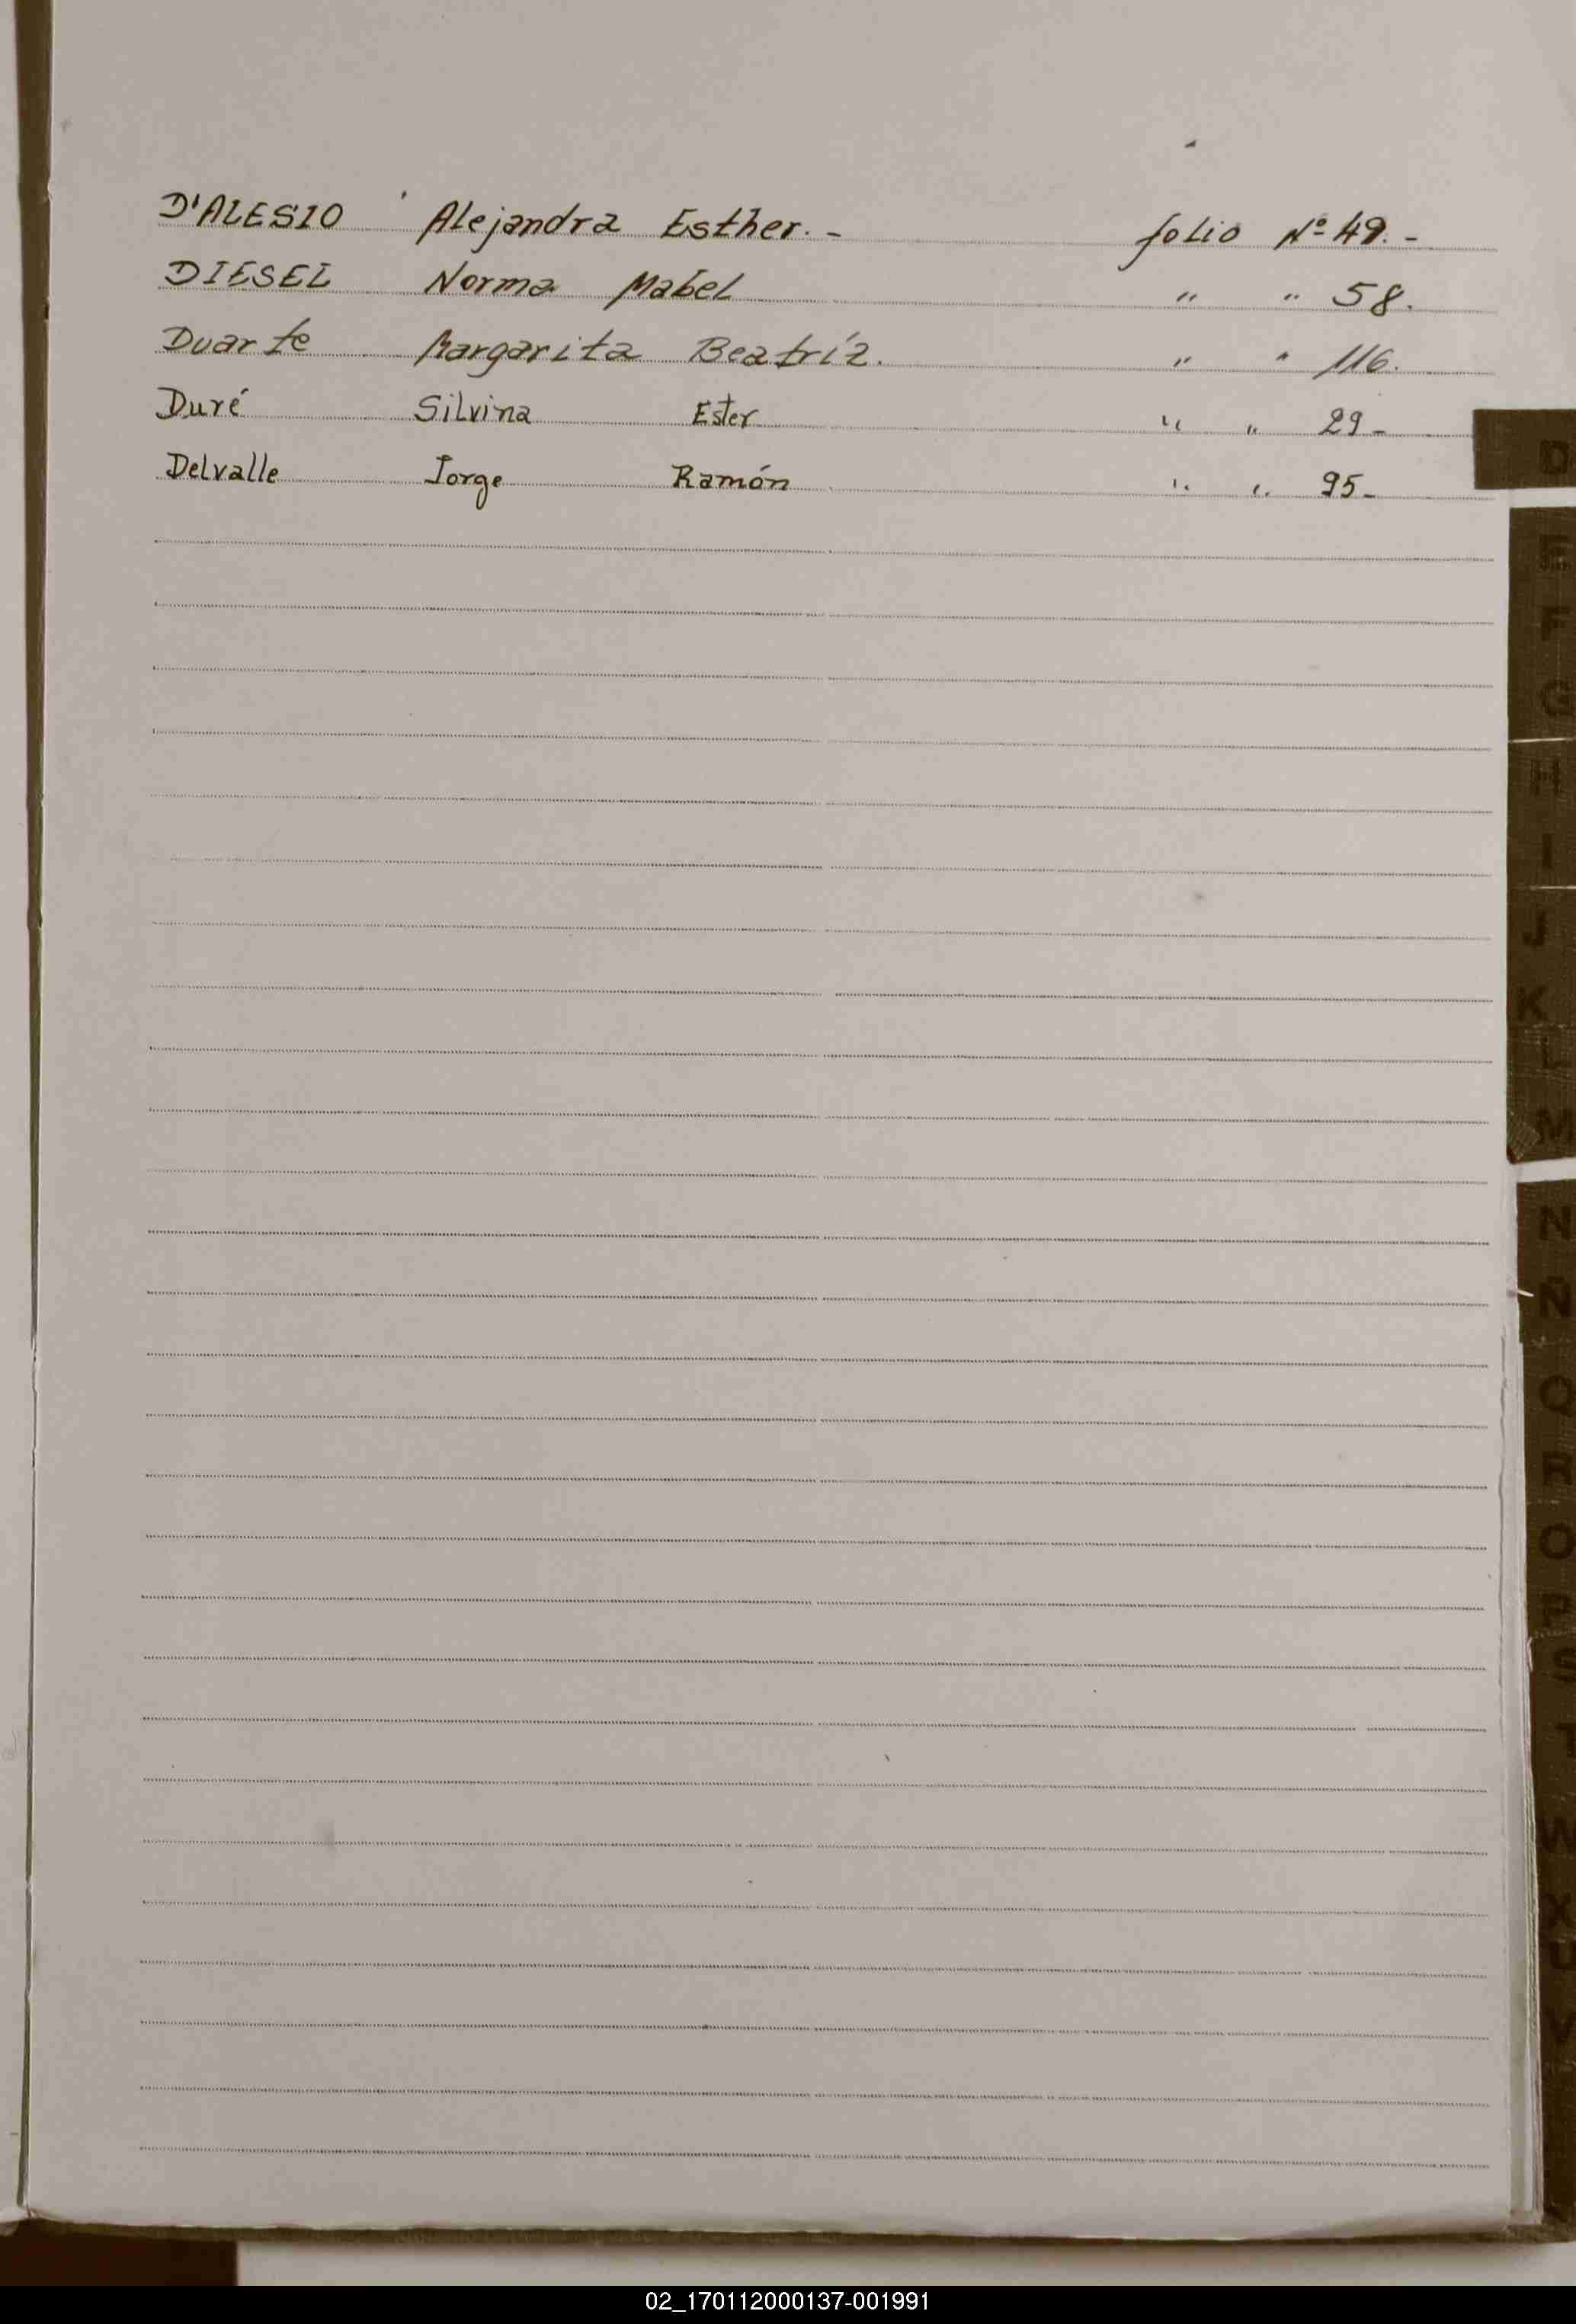 D'ALESIO Alejandra Esther.- folio Nº 49.-
DIESEL Norma Mabel " " 58.
Duarte Margarita Beatríz. " " 116.
Duré Silvina Ester " " 29-
Delvalle Jorge Ramón " " 95-
D
E
F
G
H
I
J
K
L
M
N
Ñ
Q
R
O
P
S
T
W
X
U
V
02_170112000137-001991